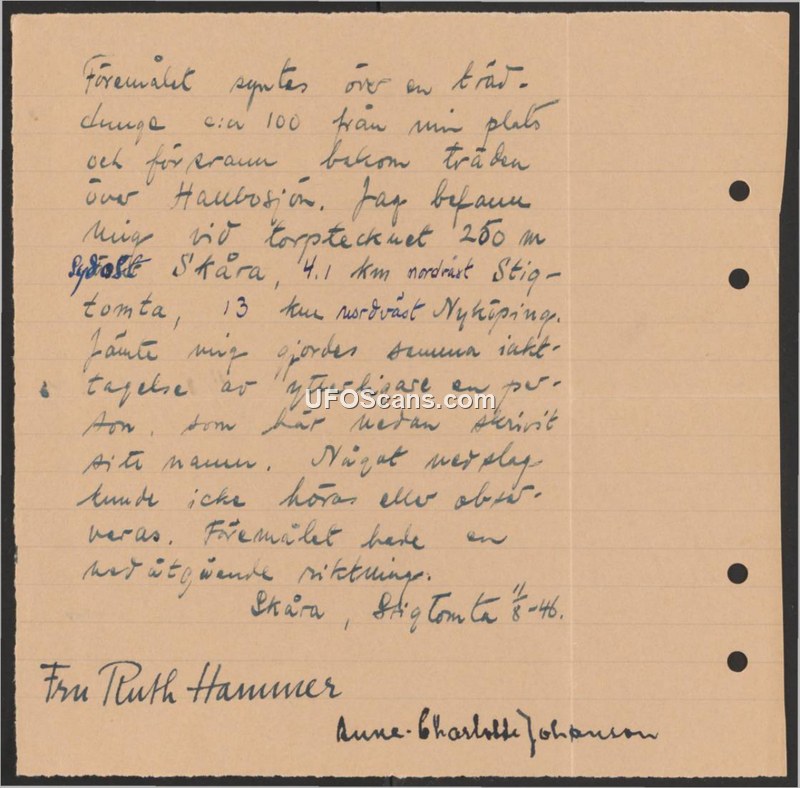 Föremålet syntes över en träd-
dunge c:a 100 från min plats
och försvann bakom träden
över Hallbosjön. Jag befann
mig vid torptecknet 250 m
Sydost Skåra, 4.1 km nordväst Stig-
tomta, 13 km nordväst Nyköping.
Jämte mig gjordes samma iakt-
tagelse av ytterligare en per-
son, som här nedan skrivit
sitt namn. Något nedslag
kunde icke höras eller obser-
veras. Föremålet hade en
nedåtgående riktning.
Skåra, Stigtomta 11/8-46.
UFOScans.com
Fru Ruth Hammer
Anne-Charlotte Johanson